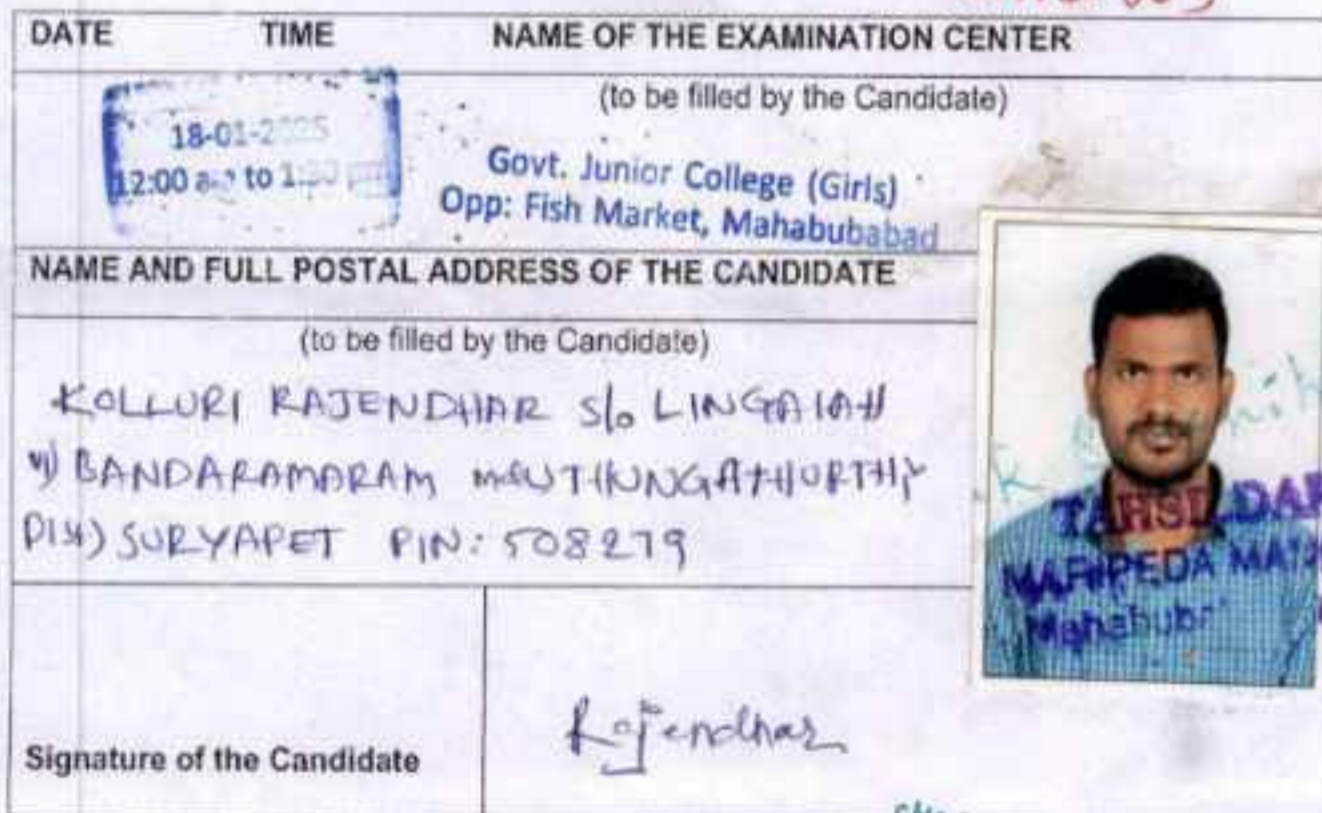 DATE TIME NAME OF THE EXAMINATION CENTER
(to be filled by the Candidate)
18-01-2025
12:00 to
Govt. Junior College (Girls)
Opp: Fish Market, Mahabubabad
NAME AND FULL POSTAL ADDRESS OF THE CANDIDATE
(to be filled by the Candidate)
KOLLURI RAJENDHAR S/o LINGAIAH
BANDARAMARAM
Dist) SURYAPET PIN: 508279
TAHSILDAR
MARIPEDA
Signature of the Candidate
Rajendhar